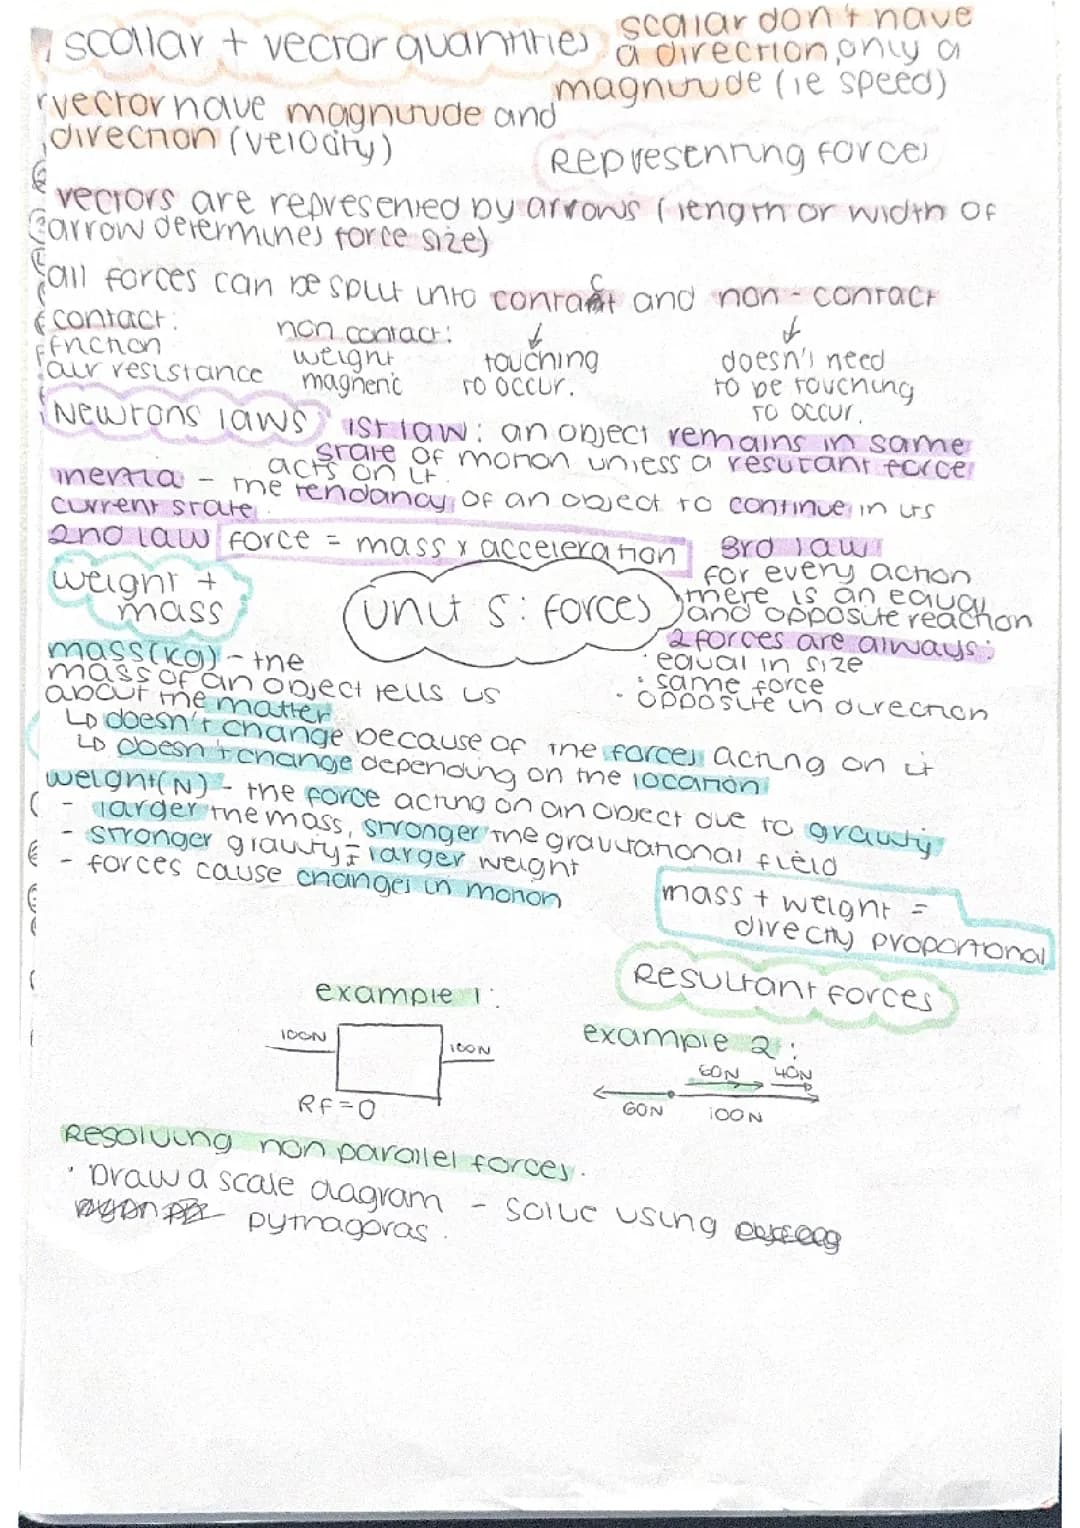 scallar + vector quantities
scalar don't have
a direction, only a
magnitude (ie speed)
vector have magnitude and
direction (velocity)
Representing forces
vectors are represented by arrows (length or width of
arrow determines force size)
all forces can be split into contact and non - contact
contact:
friction
air resistance
non contact:
weight
magnetic
touching
to occur.
doesn's need
to be touching
to occur.
Newtons laws
1st law: an object remains in same
state of motion unless a resutant force
acts on it.
inertia - the tendancy of an object to continue in its
current state.
2nd law force = mass x acceleration
3rd law
for every action
there is an equal
and opposite reaction
2 forces are always:
· equal in size
· same force
· opposite in direction
unit 5: forces
weight +
mass
mass(kg) - the
mass of an object tells us
about the matter
↳ doesn't change because of the forces acting on it
↳ doesn't change depending on the location
weight(N) - the force acting on an object due to gravity
- larger the mass, stronger the gravitational field
- stronger gravity = larger weight
- forces cause changes in motion
mass + weight =
directly proportional
Resultant forces
example 1:
100N
100N
RF=0
example 2:
60N 40N
60N 100N
Resolving non parallel forces.
· Draw a scale diagram - solve using
pythagoras.